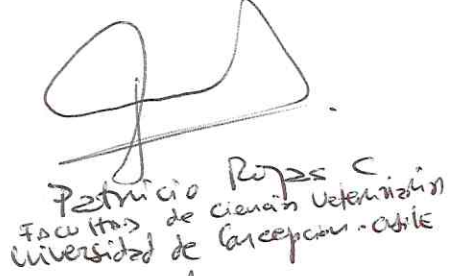 Patricio Rojas C
Facultad de Ciencias Veterinarias
Universidad de Concepción - Chile